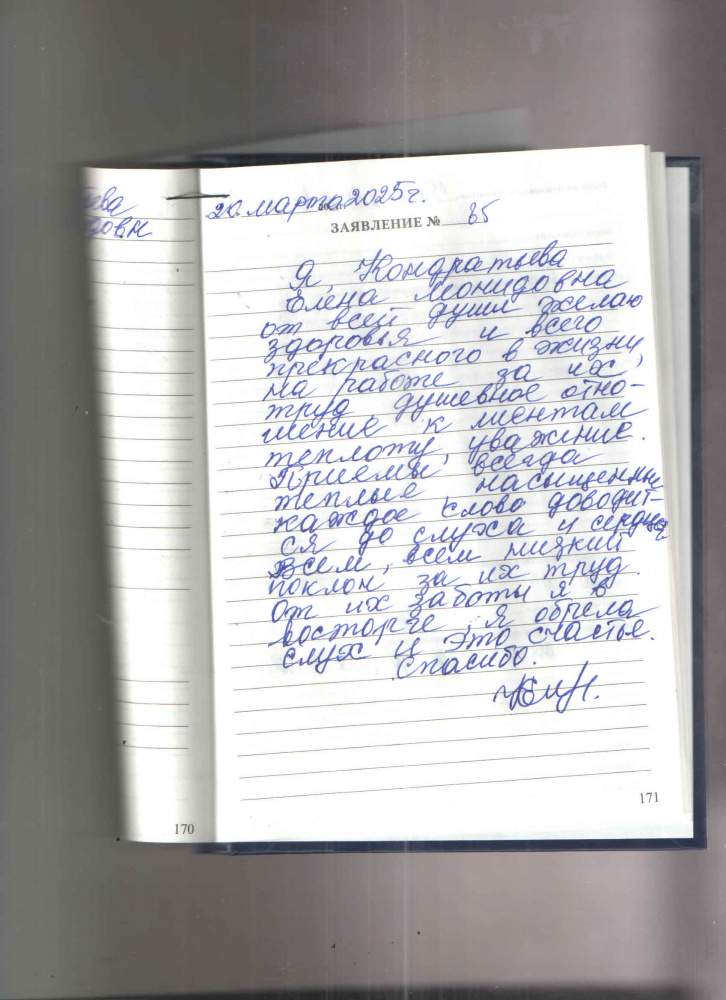 ева
довн
20. марта 2025 г.
ЗАЯВЛЕНИЕ № 85
Я, Кондратьева
Елена Леонидовна
от всей души желаю
здоровья и всего
прекрасного в жизни,
на работе за их,
труд, душевное отно-
шение к клиентам
теплоту, уважение.
Приемы, всегда
теплые насыщенны
каждое слово доводит-
ся до слуха и сердца
Всем, всем низкий
поклон за их труд.
От их заботы я в
восторге, я обрела
слух и это счастье.
Спасибо.
170
171